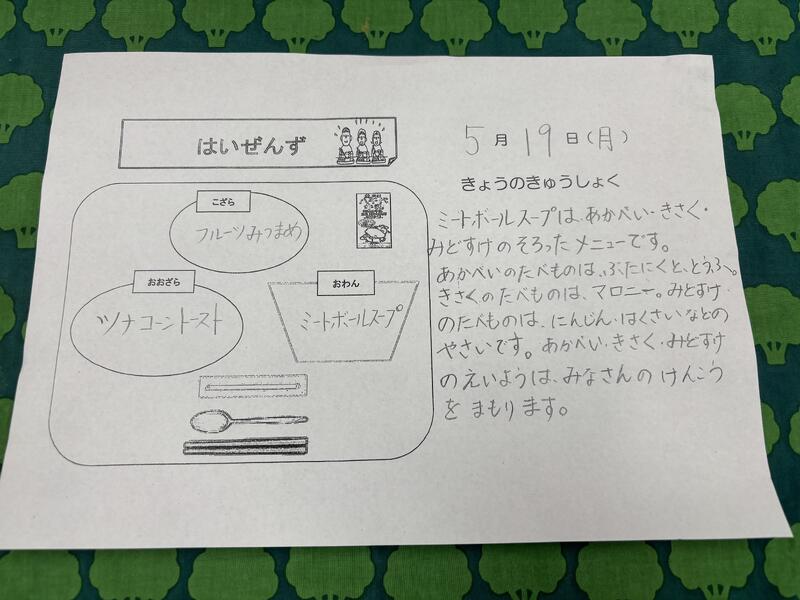 はいぜんず
こざら
フルーツみつまめ
おおざら
ツナコーントースト
おわん
ミートボールスープ
5月19日(月)
きょうのきゅうしょく
ミートボールスープは、あかべい・きさく・
みどすけのそろったメニューです。
あかべいのたべものは、ぶたにくと、とうふ。
きさくのたべものは、マロニー。みどすけ
のたべものは、にんじん・はくさいなどの
やさいです。あかべい・きさく・みどすけ
のえいようは、みなさんのけんこう
をまもります。